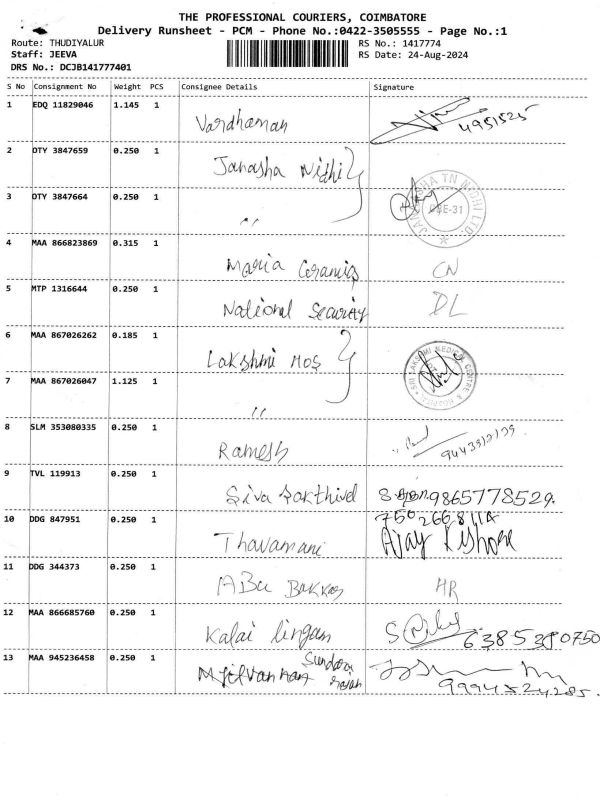 THE PROFESSIONAL COURIERS, COIMBATORE
Delivery Runsheet - PCM - Phone No.:0422-3505555 - Page No.:1
Route: THUDIYALUR RS No.: 1417774
Staff: JEEVA RS Date: 24-Aug-2024
DRS No.: DCJB141777401
S No Consignment No Weight PCS Consignee Details Signature
1 EDQ 11829046 1.145 1 Vardhaman 4951525
2 OTY 3847659 0.250 1 Janasha Nidhi
3 OTY 3847664 0.250 1 ,,
4 MAA 866823869 0.315 1 Maria Ceramics CN
5 MTP 1316644 0.250 1 National Security DL
6 MAA 867026262 0.185 1 Lakshmi Hos
SRI LAKSHMI MEDICAL CENTRE & HOSPITAL
7 MAA 867026047 1.125 1 ,,
8 SLM 353080335 0.250 1 Ramesh
9 TVL 119913 0.250 1 Siva Sakthivel 9865778529.
10 DDG 847951 0.250 1 Thavamani Ajay Kishore
11 DDG 344373 0.250 1 ABu Bakkar HR
12 MAA 866685760 0.250 1 Kalai lingan 6385380750
13 MAA 945236458 0.250 1 Sundara 9994524285.